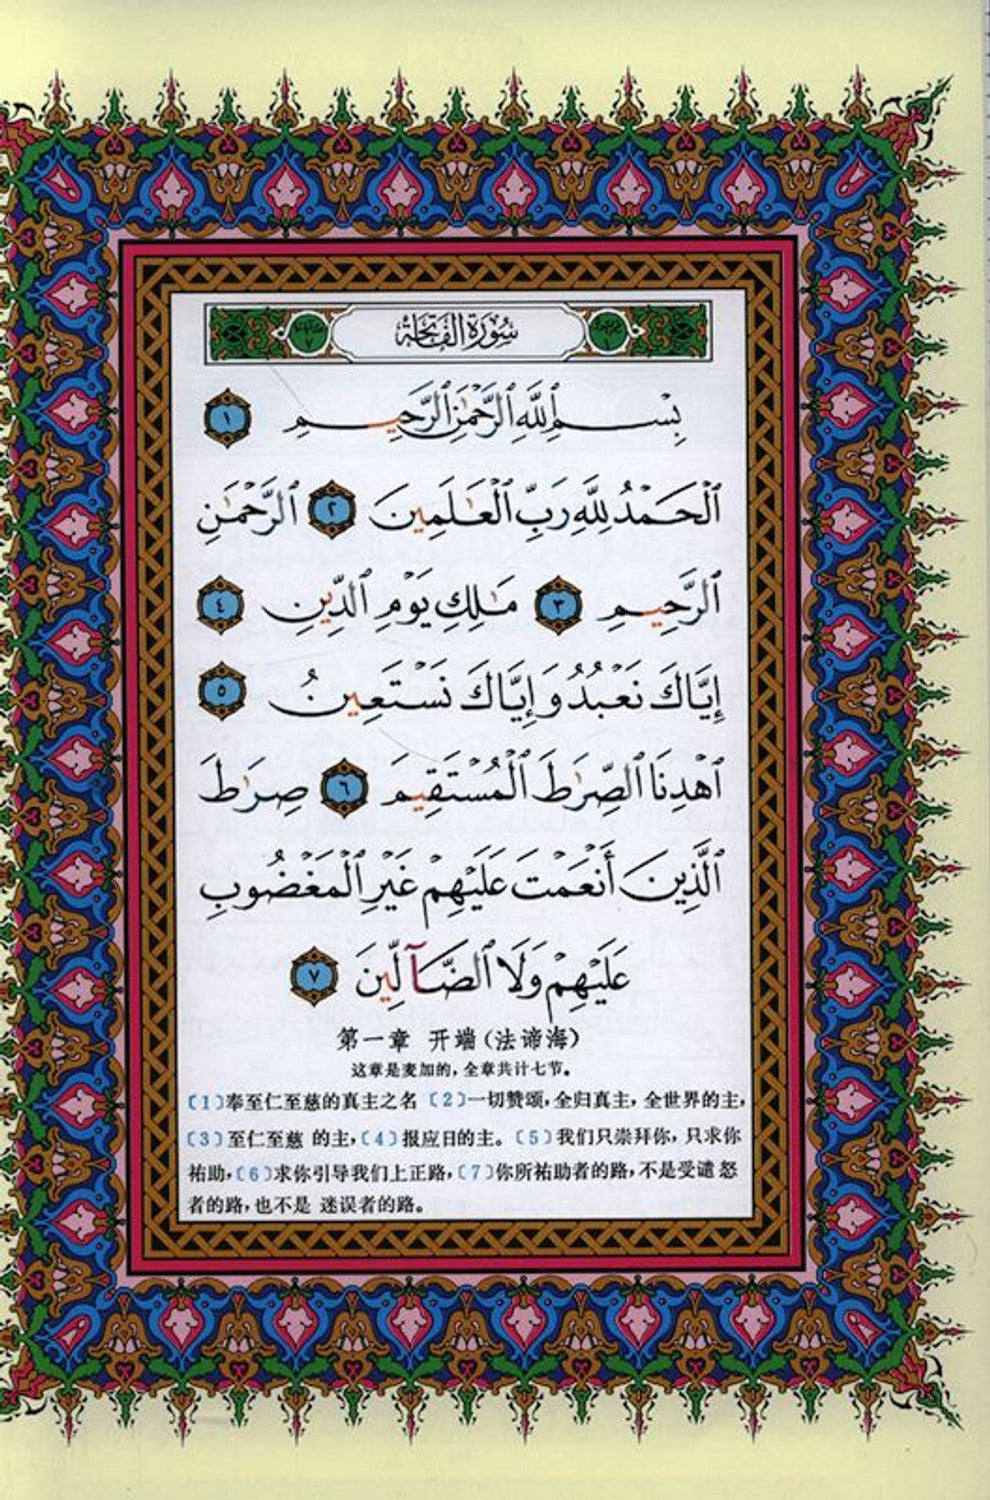 سُورَةُ الفَاتِحَةِ
بِسْمِ ٱللَّهِ ٱلرَّحْمَٰنِ ٱلرَّحِيمِ ١
ٱلْحَمْدُ لِلَّهِ رَبِّ ٱلْعَٰلَمِينَ ٢ ٱلرَّحْمَٰنِ
ٱلرَّحِيمِ ٣ مَٰلِكِ يَوْمِ ٱلدِّينِ ٤
إِيَّاكَ نَعْبُدُ وَإِيَّاكَ نَسْتَعِينُ ٥
ٱهْدِنَا ٱلصِّرَٰطَ ٱلْمُسْتَقِيمَ ٦ صِرَٰطَ
ٱلَّذِينَ أَنْعَمْتَ عَلَيْهِمْ غَيْرِ ٱلْمَغْضُوبِ
عَلَيْهِمْ وَلَا ٱلضَّآلِّينَ ٧
第一章 开端(法谛海)
这章是麦加的，全章共计七节。
〔1〕奉至仁至慈的真主之名〔2〕一切赞颂，全归真主，全世界的主，
〔3〕至仁至慈 的主，〔4〕报应日的主。〔5〕我们只崇拜你，只求你
祐助，〔6〕求你引导我们上正路，〔7〕你所祐助者的路，不是受谴 怒
者的路，也不是 迷误者的路。